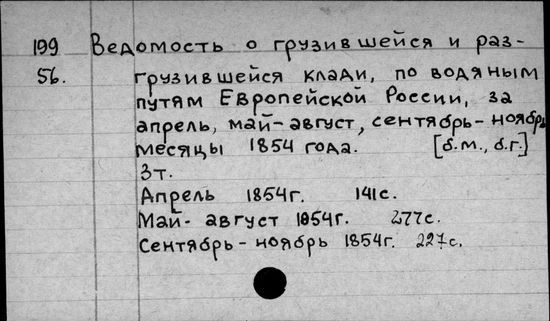 199 Ведомость о грузившейся и раз-
56. грузившейся клади, по водяным
путям Европейской России, за
апрель, май-август, сентябрь-ноябрь
месяцы 1854 года. [б.м., б.г.]
3т.
Апрель 1854г. 141с.
Май- август 1854г. 277с.
Сентябрь-ноябрь 1854г. 227с.